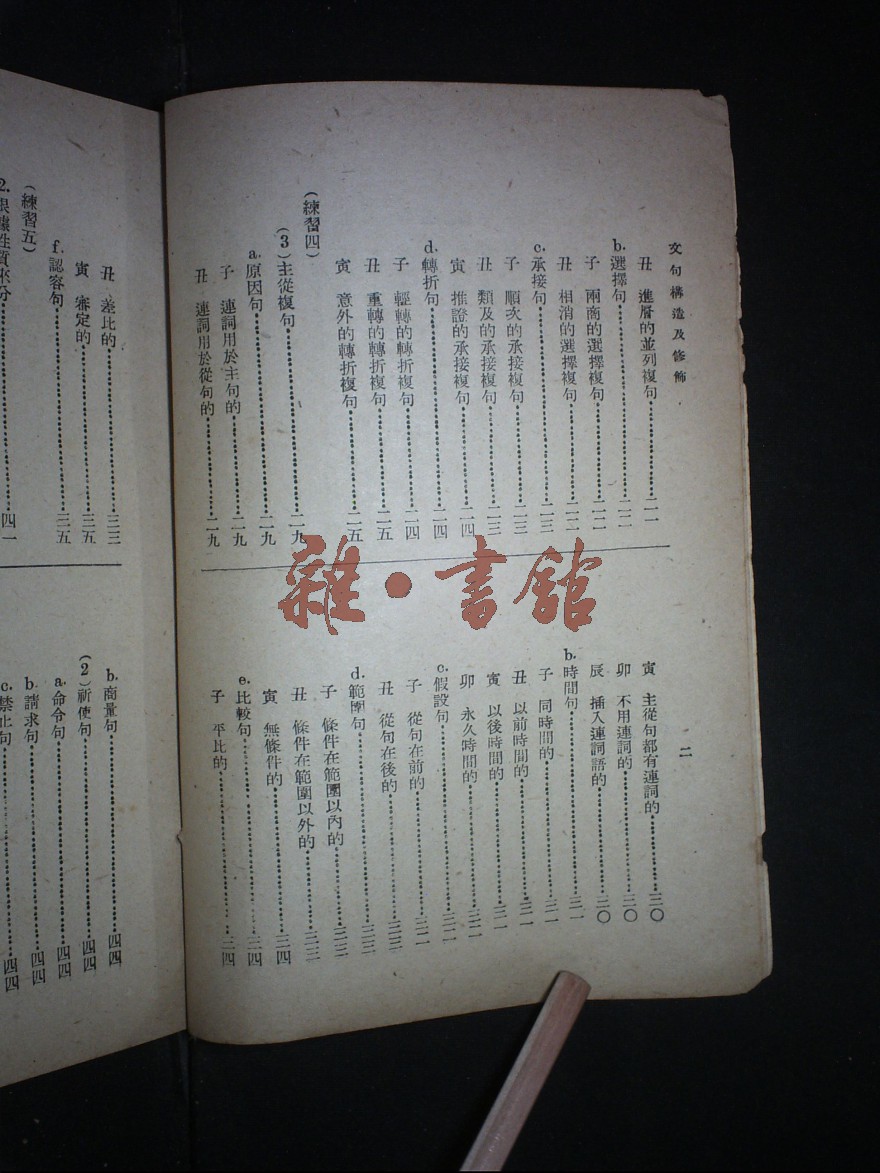 文句構造及修飾
丑 進層的並列複句……二一
b.選擇句……二二
子 兩商的選擇複句……二二
丑 相消的選擇複句……二二
c.承接句……二三
子 順次的承接複句……二三
丑 類及的承接複句……二三
寅 推證的承接複句……二四
d.轉折句……二四
子 輕轉的轉折複句……二四
丑 重轉的轉折複句……二五
寅 意外的轉折複句……二五
(練習四)
(3)主從複句……二九
a.原因句……二九
子 連詞用於主句的……二九
丑 連詞用於從句的……二九
寅 主從句都有連詞的……三〇
卯 不用連詞的……三〇
辰 插入連詞語的……三〇
b.時間句……三一
子 同時間的……三一
丑 以前時間的……三一
寅 以後時間的……三一
卯 永久時間的……三二
c.假設句……三二
子 從句在前的……三二
丑 從句在後的……三三
d.範圍句……三三
子 條件在範圍以內的……三三
丑 條件在範圍以外的……三三
寅 無條件的……三四
e.比較句……三四
子 平比的……三四
二
丑 差比的……三三
寅 審定的……三五
f.認容句……三五
(練習五)
2.根據性質來分……四一
b.商量句……四四
(2)祈使句……四四
a.命令句……四四
b.請求句……四四
c.禁止句……四四
雜·書館